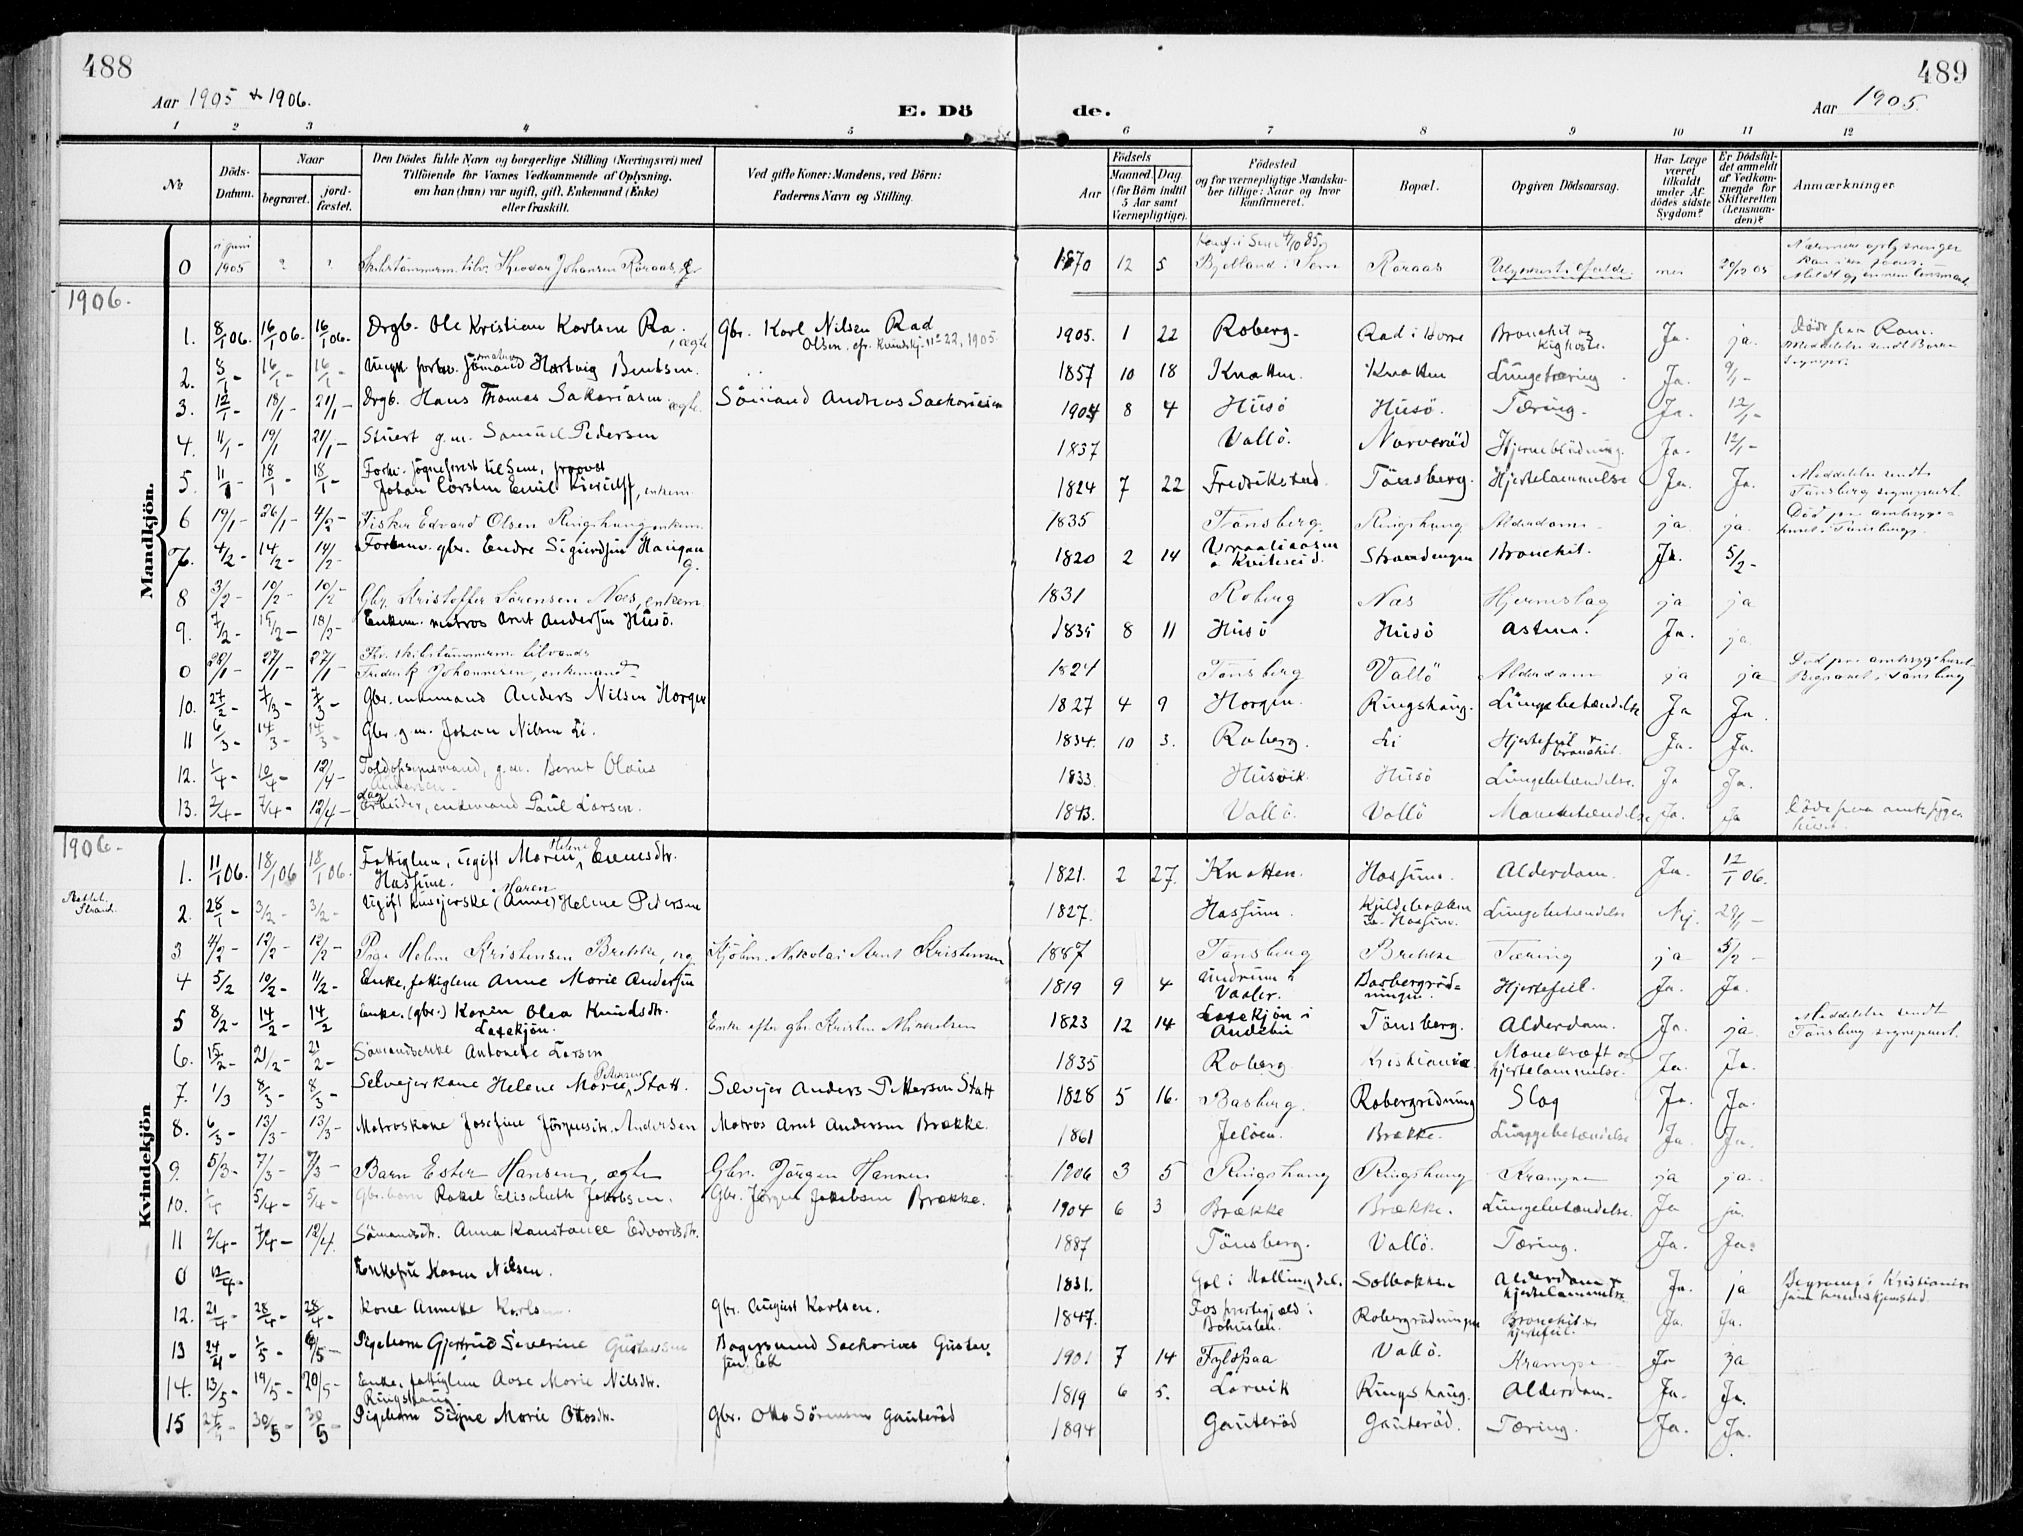 488
489
Aar 1905 & 1906.
E. Dö
de.
Aar 1905.
1 2 3 4 5 6 7 8 9 10 11 12
No
Döds-Datum.
Naar
begravet.
jord-fæstet.
Den Dödes fulde Navn og borgerlige Stilling (Næringsvei) med
Tilföiende for Voxnes Vedkommende af Oplysning,
om han (hun) var ugift, gift, Enkemand (Enke)
eller fraskilt.
Ved gifte Koner: Mandens, ved Börn:
Faderens Navn og Stilling.
Födsels
Aar
Maaned. Dag
(for Börn indtil
5 Aar samt
Værnepligtige).
Födested
og for værnepligtige Mandska-
ber tillige: Naar og hvor
konfirmeret.
Bopæl.
Opgiven Dödsaarsag.
Har Læge
været
tilkaldt
under Af-
dödes sidste
Sygdom?
Er Dödsfal-
det anmeldt
af Vedkom-
mende for
Skifteretten
(Lensman-
den)?
Anmærkninger
Mandkjön.
0 i Juni 1905 ? ? Skibstömmerm. Theodor Johansen Röraas, g 1870 12 5 Konf. i Sem 4/10 85. Bjelland i Sem Röraas nei 20/12 05
1906.
1. 8/1 06. 16/1 06. 16/1 06. Drgb. Ole Kristian Karlsen Ra., ægte Gbr. Karl Nilsen Rad 1905. 1 22 Roberg. Rad i Borre Bronchit og Kighoste. Ja. ja.
2. 8/1 - 16/1 - 16/1 - Hartvig Bentsen. 1857 10 18 Knatten. Knatten Lungetæring Ja. 9/1 -
3. 12/1 - 18/1 - 21/1 - Drgb. Hans Thomas Sakariasen ægte. Sömand Andreas Sachariasen 1904 8 4 Husö Husö. Tæring. Ja. 12/1 -
4. 11/1 - 19/1 21/1 - Stuert g.m. Samuel Pedersen 1837 Vallö. Narveröd Hjerneblödning. Ja. 12/1 -
5. 11/1 - 18/1 - 18/1 - Forh. sogneprest til Sem, provst Johan Carsten Emil Kierulf, enkem. 1824 7 22 Fredrikstad. Tönsberg. Hjertelammelse Ja. Ja. Meddelelse sendt Tönsberg sogneprest.
6 19/1 - 26/1 - 4/2 - Fisker Edvard Olsen Ringshaug enkem. 1835 Tönsberg. Ringshaug Alderdom - ja. ja. Död paa amtssyge-huset i Tönsberg.
7. 4/2 - 14/2 - 14/2 - gbr. Endre Sigurdsen Haugan g. 1820 2 14 Kviteseid. Strandengen Bronchit. Ja. 5/2 -
8 3/2 - 10/2 - 10/2 - Gbr. Kristoffer Sörensen Næs, enkem. 1831 Roberg Næs Hjerneslag ja ja
9. 7/2 - 15/2 - 18/2 - Enkm. matros Arnt Andersen Husö. 1835 8 11 Husö Husö Astma. Ja. ja.
0 20/1 - 27/1 - 27/1 - Fv. skibstömmerm. Frederik Johannesen, enkemand 1824 Tönsberg Vallö Alderdom ja ja Död paa amtssygehuset Begravet i Tönsberg
10. 27/2 - 7/3 - 7/3 - Gbr. enkemand Anders Nilsen Horgen 1827 4 9 Horgen. Ringshaug. Lungebetændelse Ja Ja.
11 6/3 - 14/3 - 14/3 - Gbr. g.m. Johan Nilsen Li. 1834. 10 3. Roberg. Li Hjertefeil & bronchit. Ja. Ja.
12. 1/4 - 10/4 - 12/4 - Toldopsynsmand, g.m. Bernt Olaus Andersen - 1833 Husövik. Husö Lungebetændelse. Ja Ja.
13. 2/4 - 7/4 - 12/4 - Arbeider, enkemand Paul Larsen. 1843. Vallö. Vallö Mavebetændelse Ja. Ja Döde paa amtssyge-huset.
Kvindekjön
1906.
1. 11/1 06. 18/1 06 18/1 06. Fattiglem, ugift Maren Helene Evensdtr. Hassum. 1821. 2 27. Knatten. Hassum. Alderdom. Ja. 12/1 06.
2. 28/1 - 3/2 - 3/2 - Ugift husejerske (Anne) Maren Helene Pedersen 1827. Hassum. Lungebetændelse Nej. 29/1 -
3 4/2 - 12/2 - 12/2 - Pige Helene Kristensen Brekke, ug Kjöbm. Nikolai Arnt Kristensen 1887 Tönsberg Brekke Tæring ja 5/2 -
4 5/2 10/2 - 11/2 - Enke, fattiglem Anne Marie Andersen 1819 9 4 Undrum i Vaaler. Hjertefeil. Ja. Ja.
5 8/2 - 14/2 - 14/2 Enke, (gbr.) Karen Olea Knudsdtr. Laxekjön. Enke efter gbr. Kristen Mikkelsen 1823 12 14 Laxekjön i Andebu Tönsberg. Alderdom. Ja ja. Meddelelse sendt Tönsberg sogneprest.
6. 15/2 - 21/2 - 21/2 - Sömandsenke Antonette Larsen 1835 Roberg Kristiania. Mavekræft og hjertelammelse. Ja. Ja.
7. 1/3 8/3 - 8/3 - Selvejerkone Helene Marie Petersen Statt. Selvejer Anders Pettersen Statt 1828 5 16. Basberg. Robergrödning Slag Ja. Ja.
8. 6/3 - 13/3 - 13/3 - Matroskone Josefine Jörgensdtr. Andersen Matros Arnt Andersen Brække. 1861 Jelöen. Brække. Lungebetændelse Ja. Ja.
9. 5/3 - 7/3 - 7/3 - Barn Ester Hansen, ægte Gbr. Jörgen Hansen 1906 3 5 Ringshaug Ringshaug Krampe ja ja.
10. 1/4 5/4 - 5/4 - Gbr.barn Rakel Elisabeth Jakobsen. Gbr. Jörgen Jakobsen Brække. 1904 6 3 Brække Brække. Lungebetændelse. Ja ja.
11 2/4 - 7/4 - 12/4. Sömandsdtr. Anna Konstance Edvardsdtr. 1887 Tönsberg. Vallö. Tæring. Ja. Ja.
0 12/4 - Enkefru Karen Nilsen. 1831. Gol i Hallingdal. Solbakken Alderdom & hjertelammelse Ja. ja Begraves i Kristiania
12. 21/4 - 28/4 - 28/4 - Kone Annette Karlsen Gbr. August Karlsen. 1847. Fos prestegjæld i Bohuslen. Robergrödningen Bronchit & hjertefeil. Ja. Ja.
13 24/4 - 1/5 - 6/5 - Pigebarn Gjertrud Severine Gustavsen Bögersvend Sacharias Gustavsen Eek 1901 7 14 Fylpaa Vallö. Krampe Ja Ja
14. 13/5 - 19/5 - 20/5 - Enke, fattiglem Aase Marie Nilsdtr. Ringshaug 1819 6 5. Larvik Ringshaug. Alderdom. Ja. Ja.
15 24/5 - 30/5 - 30/5 - Pigebarn Signe Marie Ottosdtr. Gbr. Otto Sörensen Gauteröd 1894 Gauteröd Gauteröd. Tæring. Ja. Ja.